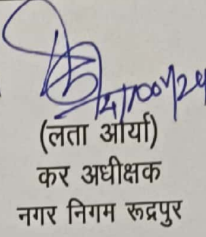 (लता आर्या)
कर अधीक्षक
नगर निगम रूद्रपुर